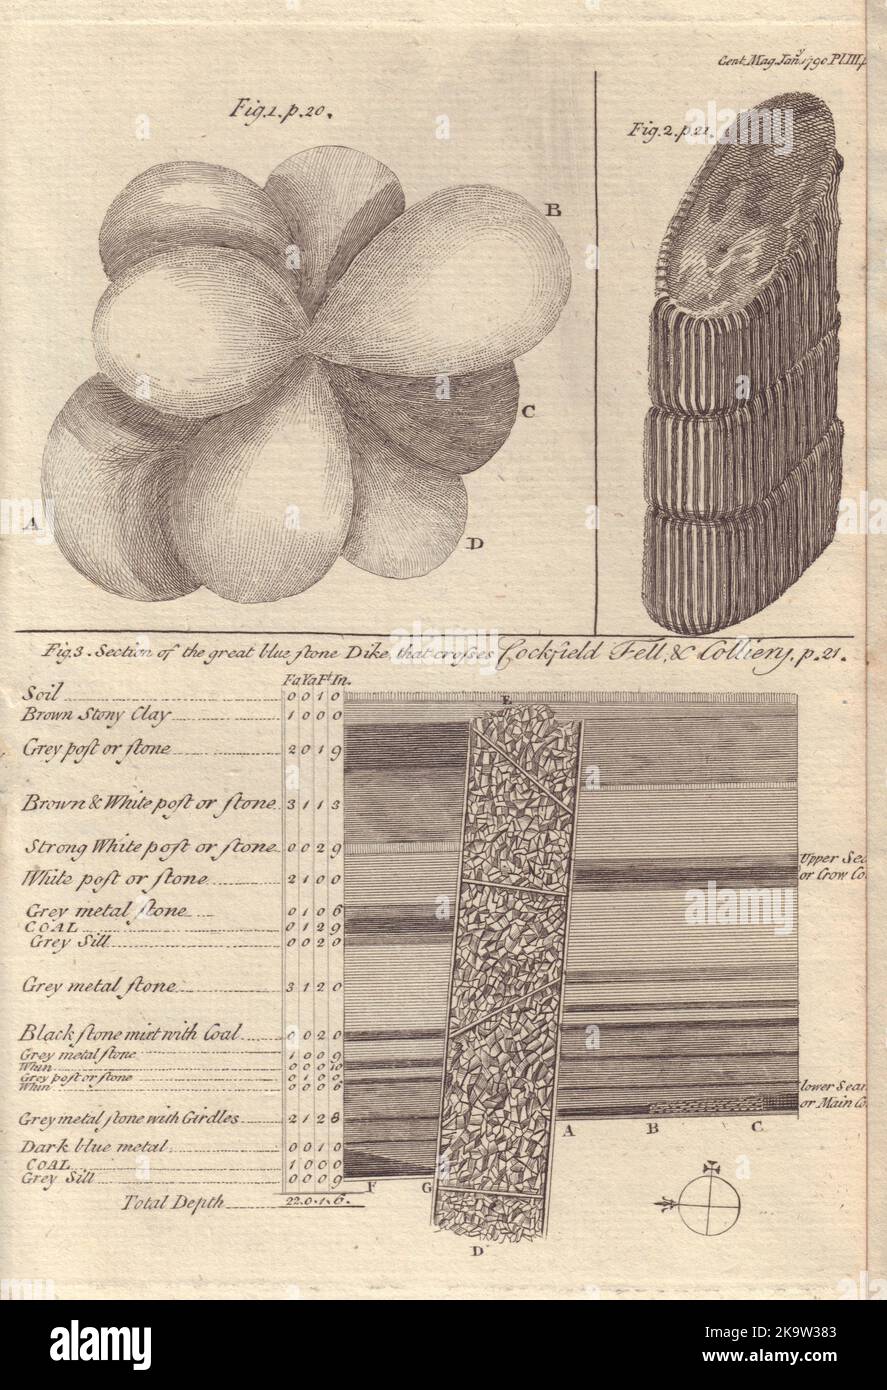 Gent. Mag. Jany. 1790 Pl.III.p
Fig.1.p.20.
Fig.2.p.21.
B
C
A
D
Fig.3. Section of the great blue ſtone Dike, that croſses Cockfield Fell, & Colliery, p.21.
Fa Ya Ft. In.
Soil 0 0 1 0
E
Brown Stony Clay 1 0 0 0
Grey poſt or ſtone 2 0 1 9
Brown & White poſt or ſtone 3 1 1 3
Strong White poſt or ſtone 0 0 2 9
Upper Sea
White poſt or ſtone 2 1 0 0
or Crow Co
Grey metal ſtone 0 1 0 6
COAL 0 1 2 9
Grey Sill 0 0 2 0
Grey metal ſtone 3 1 2 0
Black ſtone mixt with Coal 0 0 2 0
Grey metal ſtone 1 0 0 9
Whin 0 0 0 10
Grey poſt or ſtone 0 1 0 0
Whin 0 0 0 6
lower Seam
or Main Co
Grey metal ſtone with Girdles 2 1 2 8
A B C
Dark blue metal 0 0 1 0
COAL 1 0 0 0
Grey Sill 0 0 0 9
F G
Total Depth 22.0.1.6.
D
alamy
Image ID: 2K9W383
www.alamy.com